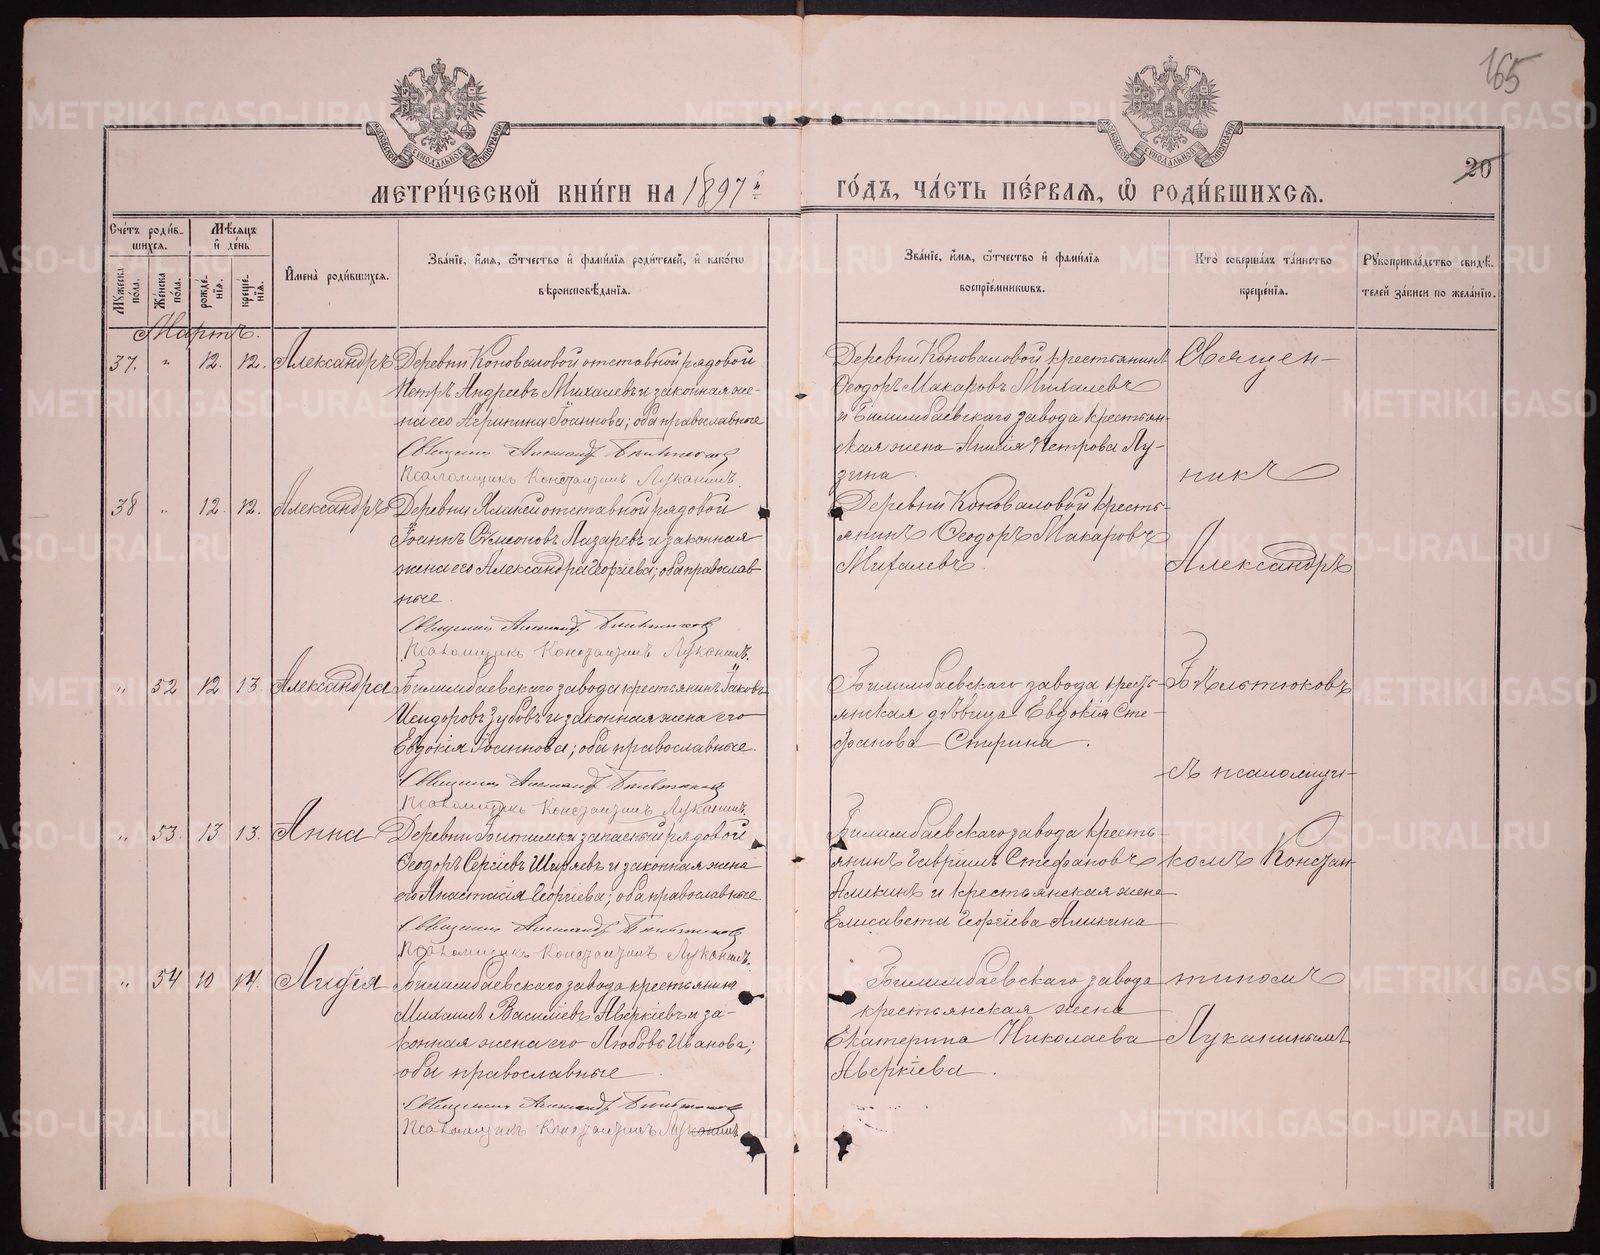 165
20
МЕТРИ́ЧЕСКОЙ КНИ́ГИ НА 1897й ГО́ДЪ, ЧА́СТЬ ПЕ́РВАѦ, Ѽ РОДИ́ВШИХСѦ.
Сче́тъ роди́в-
шихсѧ.
Мѣ́сѧцъ
и҆ де́нь
Мꙋ́жеска по́ла.
Же́нска по́ла.
рожде́-
нїѧ.
креще́-
нїѧ.
И҆мена̀ роди́вшихсѧ.
Зва́нїе, и҆́мѧ, ѻ҆́тчество и҆ фами́лїѧ роди́телей, и҆ како́гѡ
вѣроисповѣ́данїѧ.
Зва́нїе, и҆́мѧ, ѻ҆́тчество и҆ фами́лїѧ
воспрїе́мникѡвъ.
Кто̀ соверша́лъ та́инство
креще́нїѧ.
Рꙋкоприкла́дство свидѣ́-
телей за́писи по жела́нїю.
Мартъ.
37. " 12. 12. Александръ
Деревни Коноваловой отставной рядовой
Петръ Андреевъ Михалевъ и законная же-
на его Агрипина Іоаннова; оба православные
Священникъ Александръ
Псаломщикъ Константинъ Луканинъ.
Деревни Коноваловой крестьянинъ
Ѳеодоръ Макаровъ Михалевъ
и Билимбаевскаго завода крестьян-
ская жена Петрова Лу-
зина.
38 " 12. 12. Александръ
Деревни отставной рядовой
Іоаннъ Сѵмеоновъ Лазаревъ и законная
жена его Александра Георгіева; оба православ-
ные.
Священникъ Александръ
Псаломщикъ Константинъ Луканинъ.
Деревни Коноваловой кресть-
янинъ Ѳеодоръ Макаровъ
Михалевъ.
" 52 12 13. Александра
Билимбаевскаго завода крестьянинъ Іаковъ
Исидоровъ Зубовъ и законная жена его
Евдокія Іоаннова; оба православные.
Священникъ Александръ
Псаломщикъ Константинъ Луканинъ.
Билимбаевскаго завода кресть-
янская дѣвица Евдокія Сте-
фанова Спирина.
" 53. 13 13. Анна
Деревни Битимки запасный рядовой
Ѳеодоръ Сергіевъ Ширяевъ и законная жена
его Анастасія Георгіева; оба православные
Священникъ Александръ
Псаломщикъ Константинъ Луканинъ.
Билимбаевскаго завода кресть-
янинъ Гавріилъ Стефановъ
Аликинъ и крестьянская жена
Елисавета Георгіева Аликина
" 54 10 14. Лидія
Билимбаевскаго завода крестьянинъ
Михаилъ Василіевъ Аверкіевъ и за-
конная жена его Любовь Иванова;
оба православные.
Священникъ Александръ
Псаломщикъ Константинъ Луканинъ.
Билимбаевскаго завода
крестьянская жена
Екатерина Николаева
Аверкіева.
Священ-
никъ
Александръ
съ псаломщи-
комъ Констан-
тиномъ
Луканинымъ